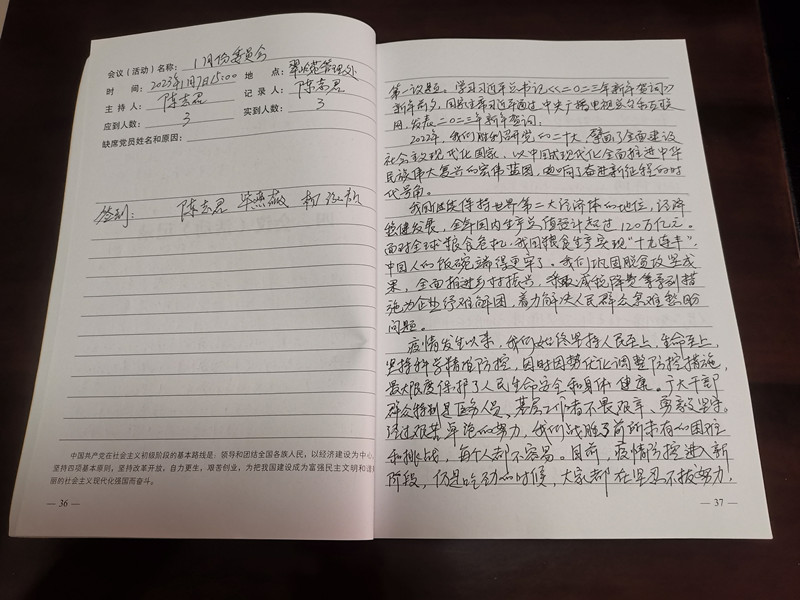 会议（活动）名称：1月份委员会
时 间：2023年1月7日15:00 地 点：翠岭苑管理处
主 持 人：陈志君 记 录 人：陈志君
应到人数：3 实到人数：3
缺席党员姓名和原因：
签到： 陈志君
中国共产党在社会主义初级阶段的基本路线是：领导和团结全国各族人民，以经济建设为中心，
坚持四项基本原则，坚持改革开放，自力更生，艰苦创业，为把我国建设成为富强民主文明和谐
丽的社会主义现代化强国而奋斗。
— 36
第一议题。学习习近平总书记《二〇二三年新年贺词》
新年前夕，国家主席习近平通过中央广播电视总台和互联
网，发表二〇二三年新年贺词。
2022年，我们胜利召开党的二十大，擘画了全面建设
社会主义现代化国家、以中国式现代化全面推进中华
民族伟大复兴的宏伟蓝图，吹响了奋进新征程的时
代号角。
我国继续保持世界第二大经济体的地位，经济
稳健发展，全年国内生产总值预计超过120万亿元。
面对全球粮食危机，我国粮食生产实现"十九连丰"，
中国人的饭碗端得更牢了。我们巩固脱贫攻坚成
果，全面推进乡村振兴，采取减税降费等系列措
施为企业纾难解困，着力解决人民群众急难愁盼
问题。
疫情发生以来，我们始终坚持人民至上、生命至上，
坚持科学精准防控，因时因势优化调整防控措施，
最大限度保护了人民生命安全和身体健康。广大干部
群众特别是医务人员、基层工作者不畏艰辛、勇毅坚守。
经过艰苦卓绝的努力，我们战胜了前所未有的困难
和挑战，每个人都不容易。目前，疫情防控进入新
阶段，仍是吃劲的时候，大家都在坚忍不拔努力，
— 37 —